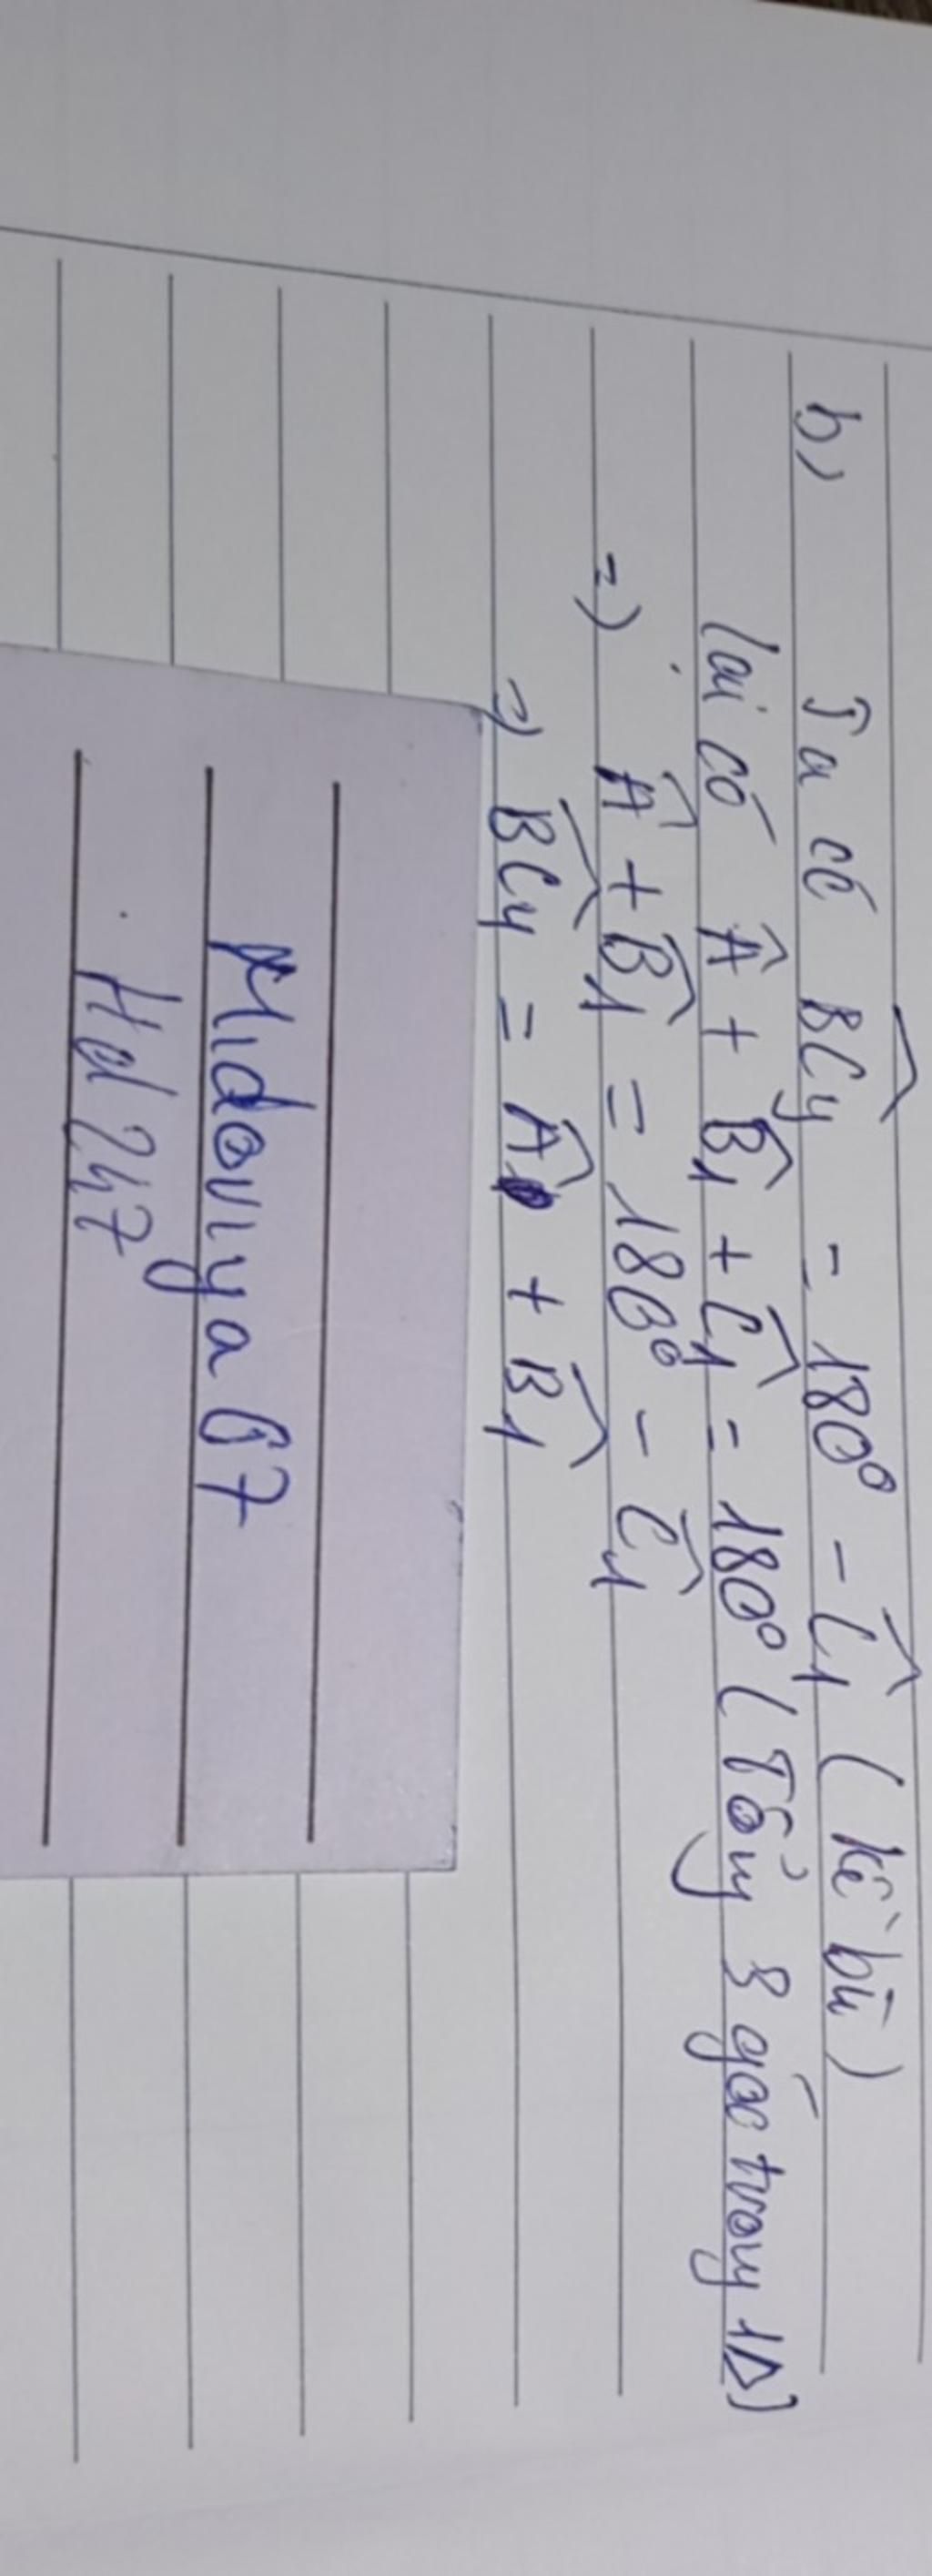 b) Ta có BCy = 180° - C1 (kề bù)
lại có A + B1 + C1 = 180° (Tổng 3 góc trong 1Δ)
=> A + B1 = 180° - C1
=> BCy = A + B1
Midoriya67
Hd247